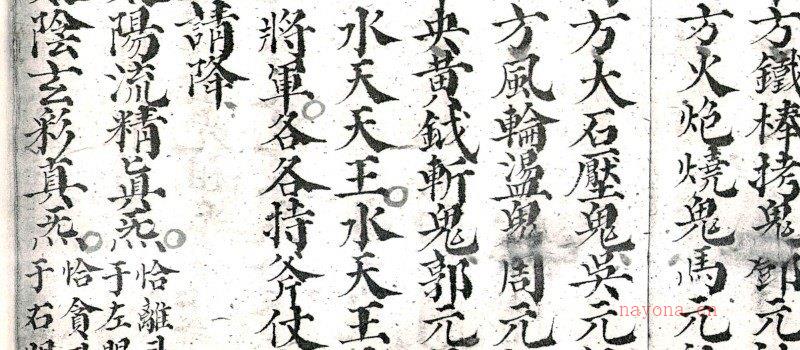 方鐵棒拷鬼鄧元
方火炮燒鬼馬元
方大石壓鬼吳元
方風輪盪鬼周元
央黃鉞斬鬼郭元
水天天王水天王
將軍各各持斧仗
請降
太陽流精真炁恰離
于左
太陰玄彩真炁恰貪
于右
nayona.cn